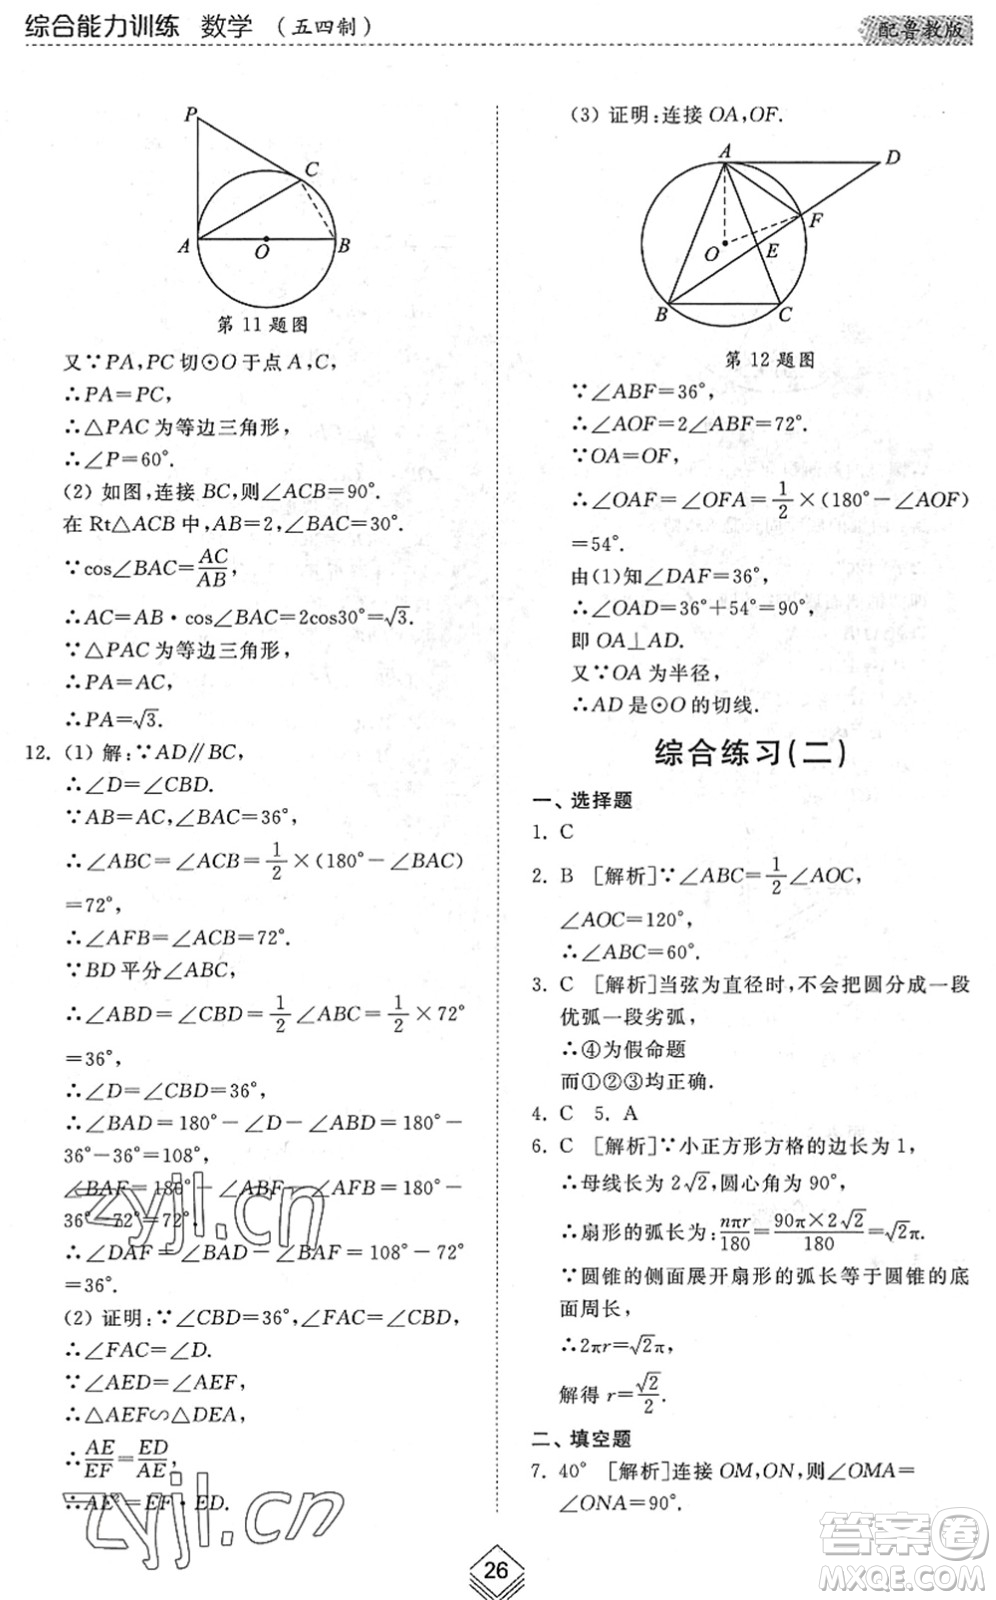 综合能力训练 数学 (五四制)
配鲁教版
P
C
A
O
B
第 11 题图
又∵PA,PC 切⊙O 于点 A,C,
∴PA=PC,
∴△PAC 为等边三角形,
∴∠P=60°.
(2) 如图,连接 BC,则∠ACB=90°.
在 Rt△ACB 中,AB=2,∠BAC=30°.
∵cos∠BAC=AC/AB,
∴AC=AB·cos∠BAC=2cos30°=√3.
∵△PAC 为等边三角形,
∴PA=AC,
∴PA=√3.
12. (1) 解:∵AD∥BC,
∴∠D=∠CBD.
∵AB=AC,∠BAC=36°,
∴∠ABC=∠ACB=1/2×(180°-∠BAC)
=72°,
∴∠AFB=∠ACB=72°.
∵BD 平分∠ABC,
∴∠ABD=∠CBD=1/2∠ABC=1/2×72°
=36°,
∴∠D=∠CBD=36°,
∴∠BAD=180°-∠D-∠ABD=180°-
36°-36°=108°,
∠BAF=180°-∠ABF-∠AFB=180°-
36°-72°=72°,
∴∠DAF=∠BAD-∠BAF=108°-72°
=36°.
(2) 证明:∵∠CBD=36°,∠FAC=∠CBD,
∴∠FAC=∠D.
∵∠AED=∠AEF,
∴△AEF∽△DEA,
∴AE/EF=ED/AE,
∴AE²=EF·ED.
(3) 证明:连接 OA,OF.
A
D
F
O
E
B
C
第 12 题图
∵∠ABF=36°,
∴∠AOF=2∠ABF=72°.
∵OA=OF,
∴∠OAF=∠OFA=1/2×(180°-∠AOF)
=54°.
由(1)知∠DAF=36°,
∴∠OAD=36°+54°=90°,
即 OA⊥AD.
又∵OA 为半径,
∴AD 是⊙O 的切线.
综合练习(二)
一、选择题
1. C
2. B [解析]∵∠ABC=1/2∠AOC,
∠AOC=120°,
∴∠ABC=60°.
3. C [解析]当弦为直径时,不会把圆分成一段
优弧一段劣弧,
∴④为假命题
而①②③均正确.
4. C 5. A
6. C [解析]∵小正方形方格的边长为 1,
∴母线长为 2√2,圆心角为 90°,
∴扇形的弧长为:nπr/180=90π×2√2/180=√2π.
∵圆锥的侧面展开扇形的弧长等于圆锥的底
面周长,
∴2πr=√2π,
解得 r=√2/2.
二、填空题
7. 40° [解析]连接 OM,ON,则∠OMA=
∠ONA=90°.
26
zyjl.cn
zyjl.cn
答案圈
MXQE.COM